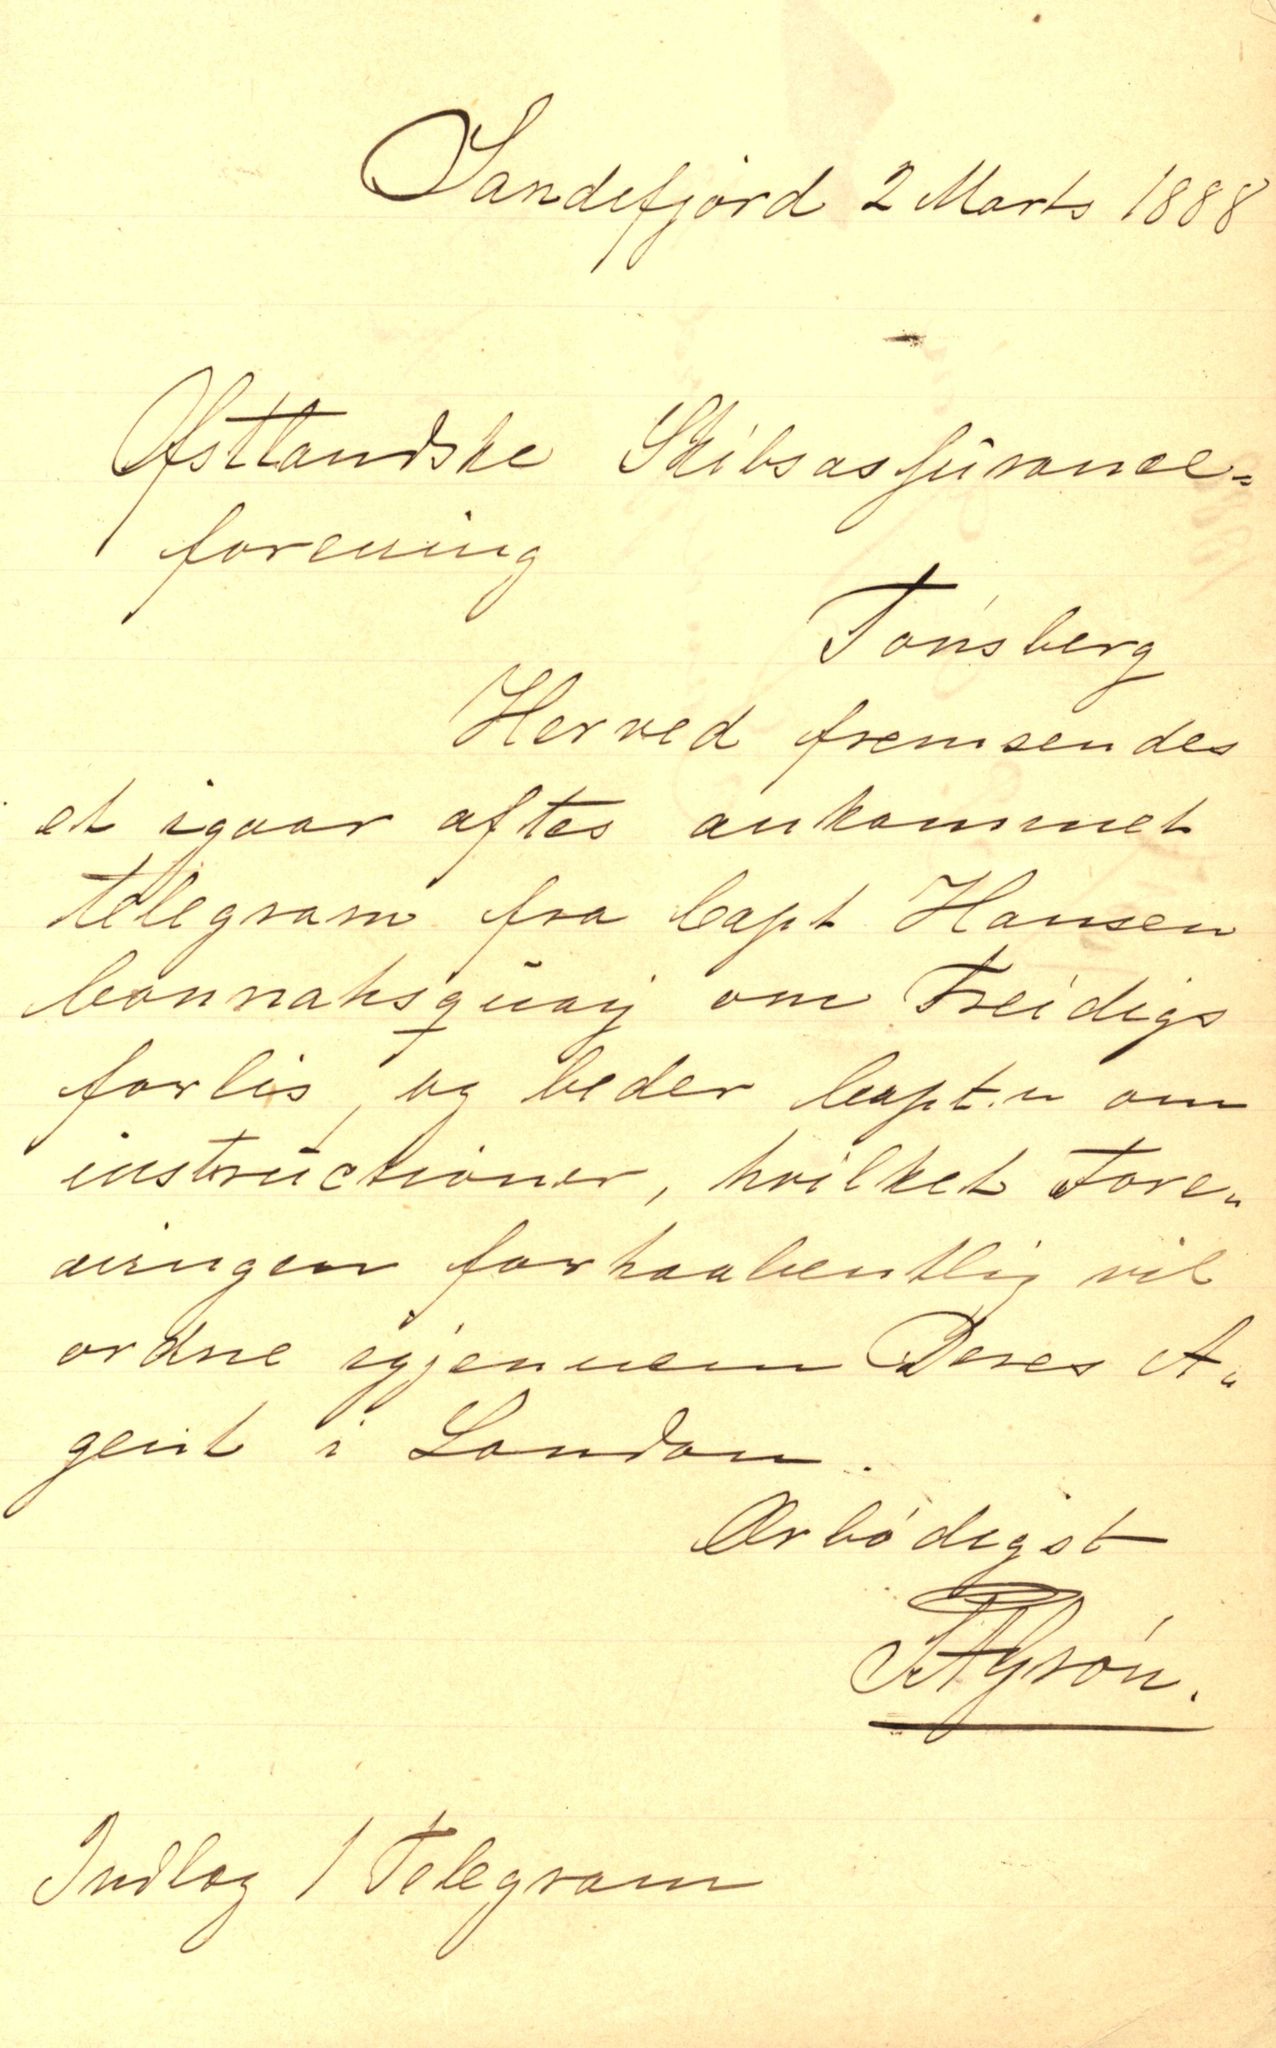 Sandefjord 2 Marts 1888
Østlandske Skibsassurance=
forening
Tønsberg
Herved fremsendes
et igaar aftes ankommet
telegram fra Capt Hansen
Connahsquay om Freidigs
forlis, og beder Capt.n om
instructioner, hvilket Fore„
ningen forhaabentlig vil
ordne igjennem Deres A„
gent i London.
Ærbødigst
Grøn.
Indlag 1 Telegram